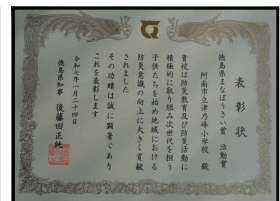 表彰状
徳島県まなぼうさい賞 活動賞
阿南市立津乃峰小学校 殿
貴校は防災教育及び防災活動に
積極的に取り組み次世代を担う
子供たちを始め地域における
防災意識の向上に大きく貢献
されました
その功績は誠に顕著であり
これを表彰します
令和七年一月二十四日
徳島県知事 後藤田正純